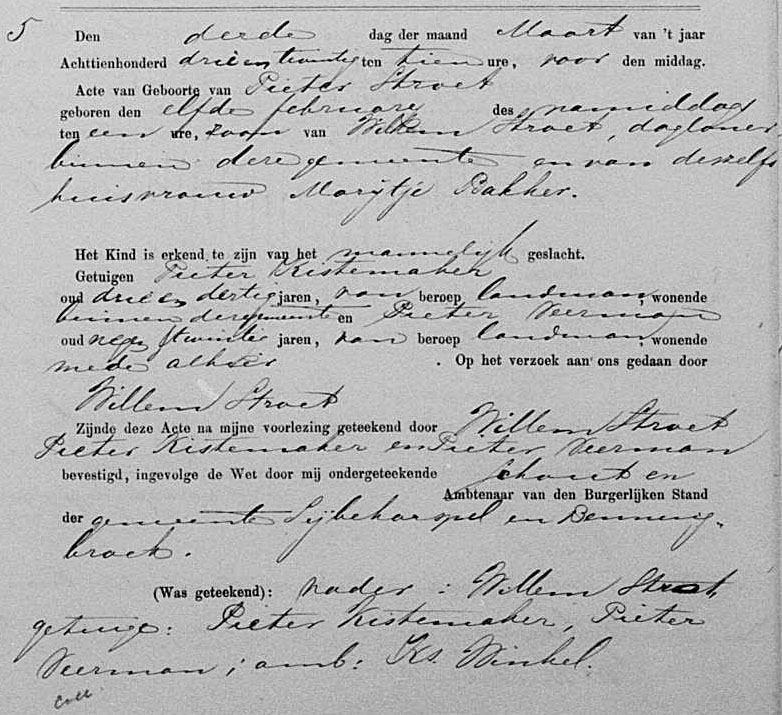 5
Den derde dag der maand Maart van 't jaar
Achttienhonderd drieentwintig ten tien ure, voor den middag.
Acte van Geboorte van Pieter Stroet
geboren den elfde february des namiddag
ten een ure, zoon van Willem Stroet, dagloner
binnen dere gemeente en van deszelfs
huisvrouw Marijtje Bakker.
Het Kind is erkend te zijn van het mannelijk geslacht.
Getuigen Pieter Kistemaker
oud drieen dertig jaren, van beroep landman, wonende
binnen deregemeente en Pieter Veerman
oud negentwintig jaren, van beroep landman, wonende
mede alhier. Op het verzoek aan ons gedaan door
Willem Stroet
Zijnde deze Acte na mijne voorlezing geteekend door Willem Stroet
Pieter Kistemaker en Pieter Veerman
bevestigd, ingevolge de Wet door mij ondergeteekende Schout en
Ambtenaar van den Burgerlijken Stand
der gemeente Sijbekarspel en Benning-
broek.
(Was geteekend): vader: Willem Stroet,
getuige: Pieter Kistemaker, Pieter
Veerman; amb: Ks. Winkel.
Coll.